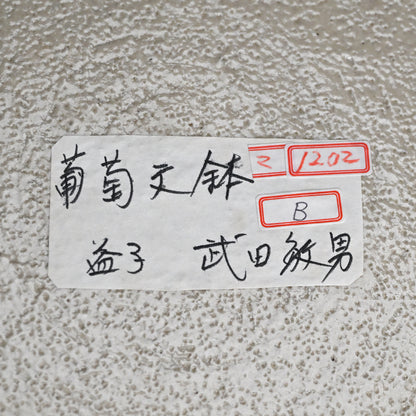 葡萄文鉢
Z 1202
B
益子 武田敏男